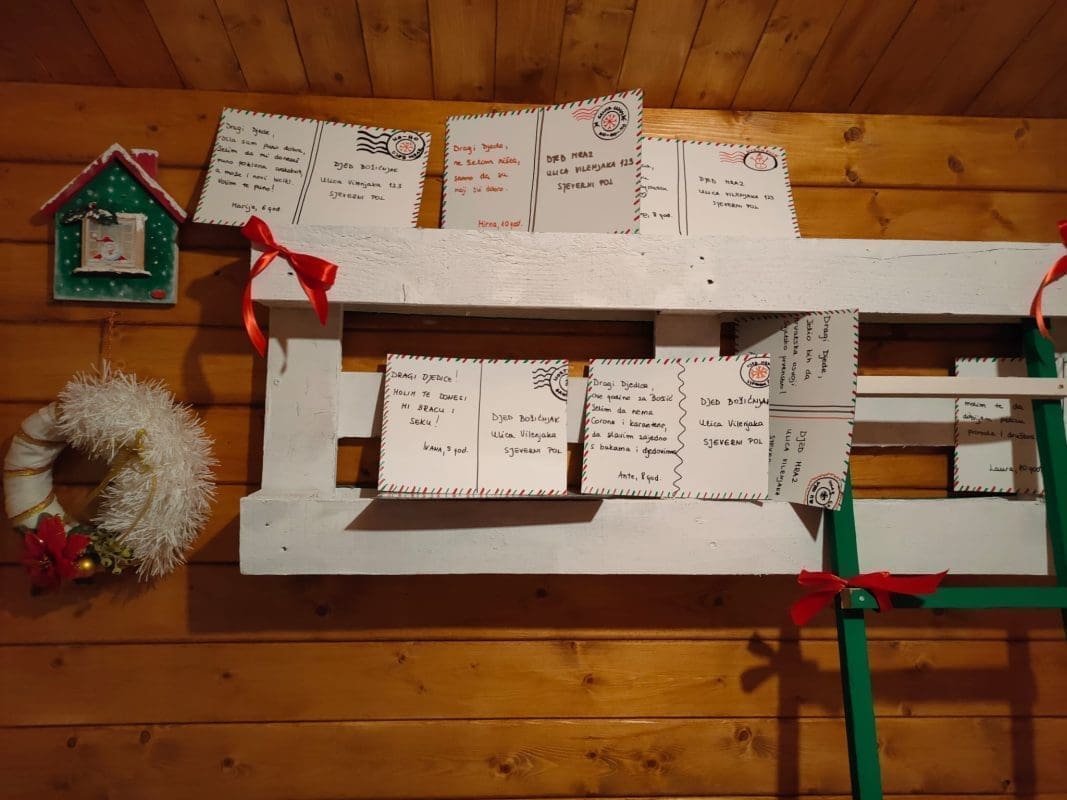 Dragi Djede,
bila sam puno dobra,
želim da mi doneseš
puno poklona
a može i novi bicikl.
Volim te puno!
Marija, 6 god
HO-HO
DJED BOŽIĆNJAK
Ulica Vilenjaka 123
SJEVERNI POL
Dragi Djede,
ne želim ništa,
samo da su
svi dobro.
Mirna, 10 god.
DJED MRAZ
ULICA VILENJAKA 123
SJEVERNI POL
8 god.
DJED MRAZ
ULICA VILENJAKA 123
SJEVERNI POL
DRAGI DJEDICE!
MOLIM TE DONESI
MI BRACU I
SEKU!
IVANA, 5 god.
DJED BOŽIĆNJAK
Ulica Vilenjaka
SJEVERNI POL
Dragi Djedice,
ove godine za Božić
želim da nema
Corone i karantene,
da slavim zajedno
s bakama i djedovima
Ante, 8 god.
DJED BOŽIĆNJAK
Ulica Vilenjaka
SJEVERNI POL
Dragi Djede,
želio bih da
Hrvatska osvoji
prvenstvo!
DJED MRAZ
ULICA VILENJAKA
SJEVERNI
molim te da
prirodu i društvo
Laura, 10 god